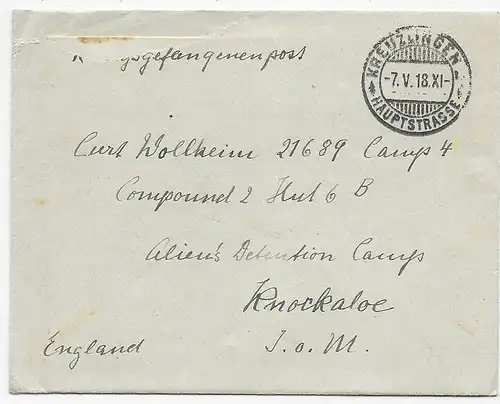 Kriegsgefangenenpost
KREUZLINGEN
-7.V.18.XI-
HAUPTSTRASSE
Curt Wollheim 21689 Camp 4
Compound 2 Hut 6 B
Alien's Detention Camp
Knockaloe
England I.o.M.